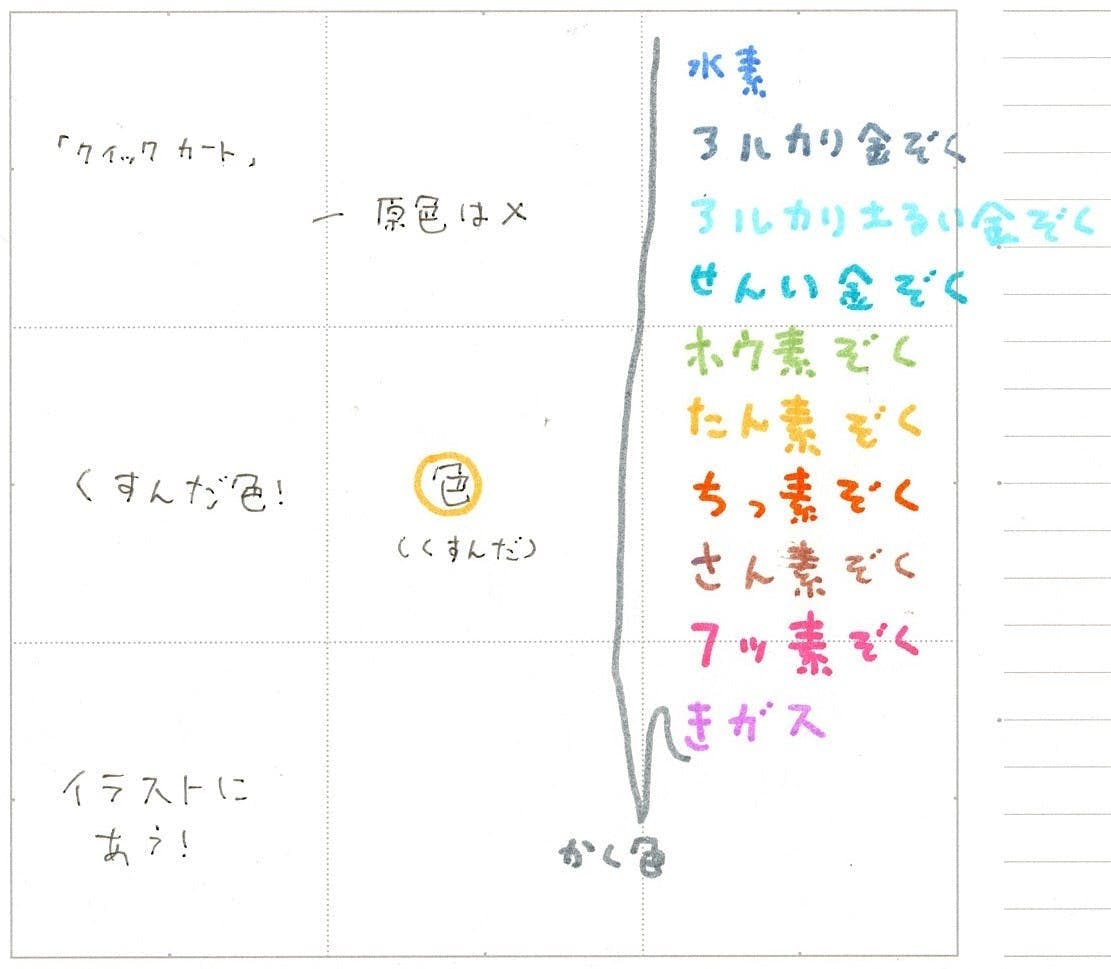 「クイックカート」
ー 原色は×
くすんだ色!
色
(くすんだ)
イラストに
あう!
水素
アルカリ金ぞく
アルカリ土るい金ぞく
せんい金ぞく
ホウ素ぞく
たん素ぞく
ちっ素ぞく
さん素ぞく
フッ素ぞく
きガス
かく色